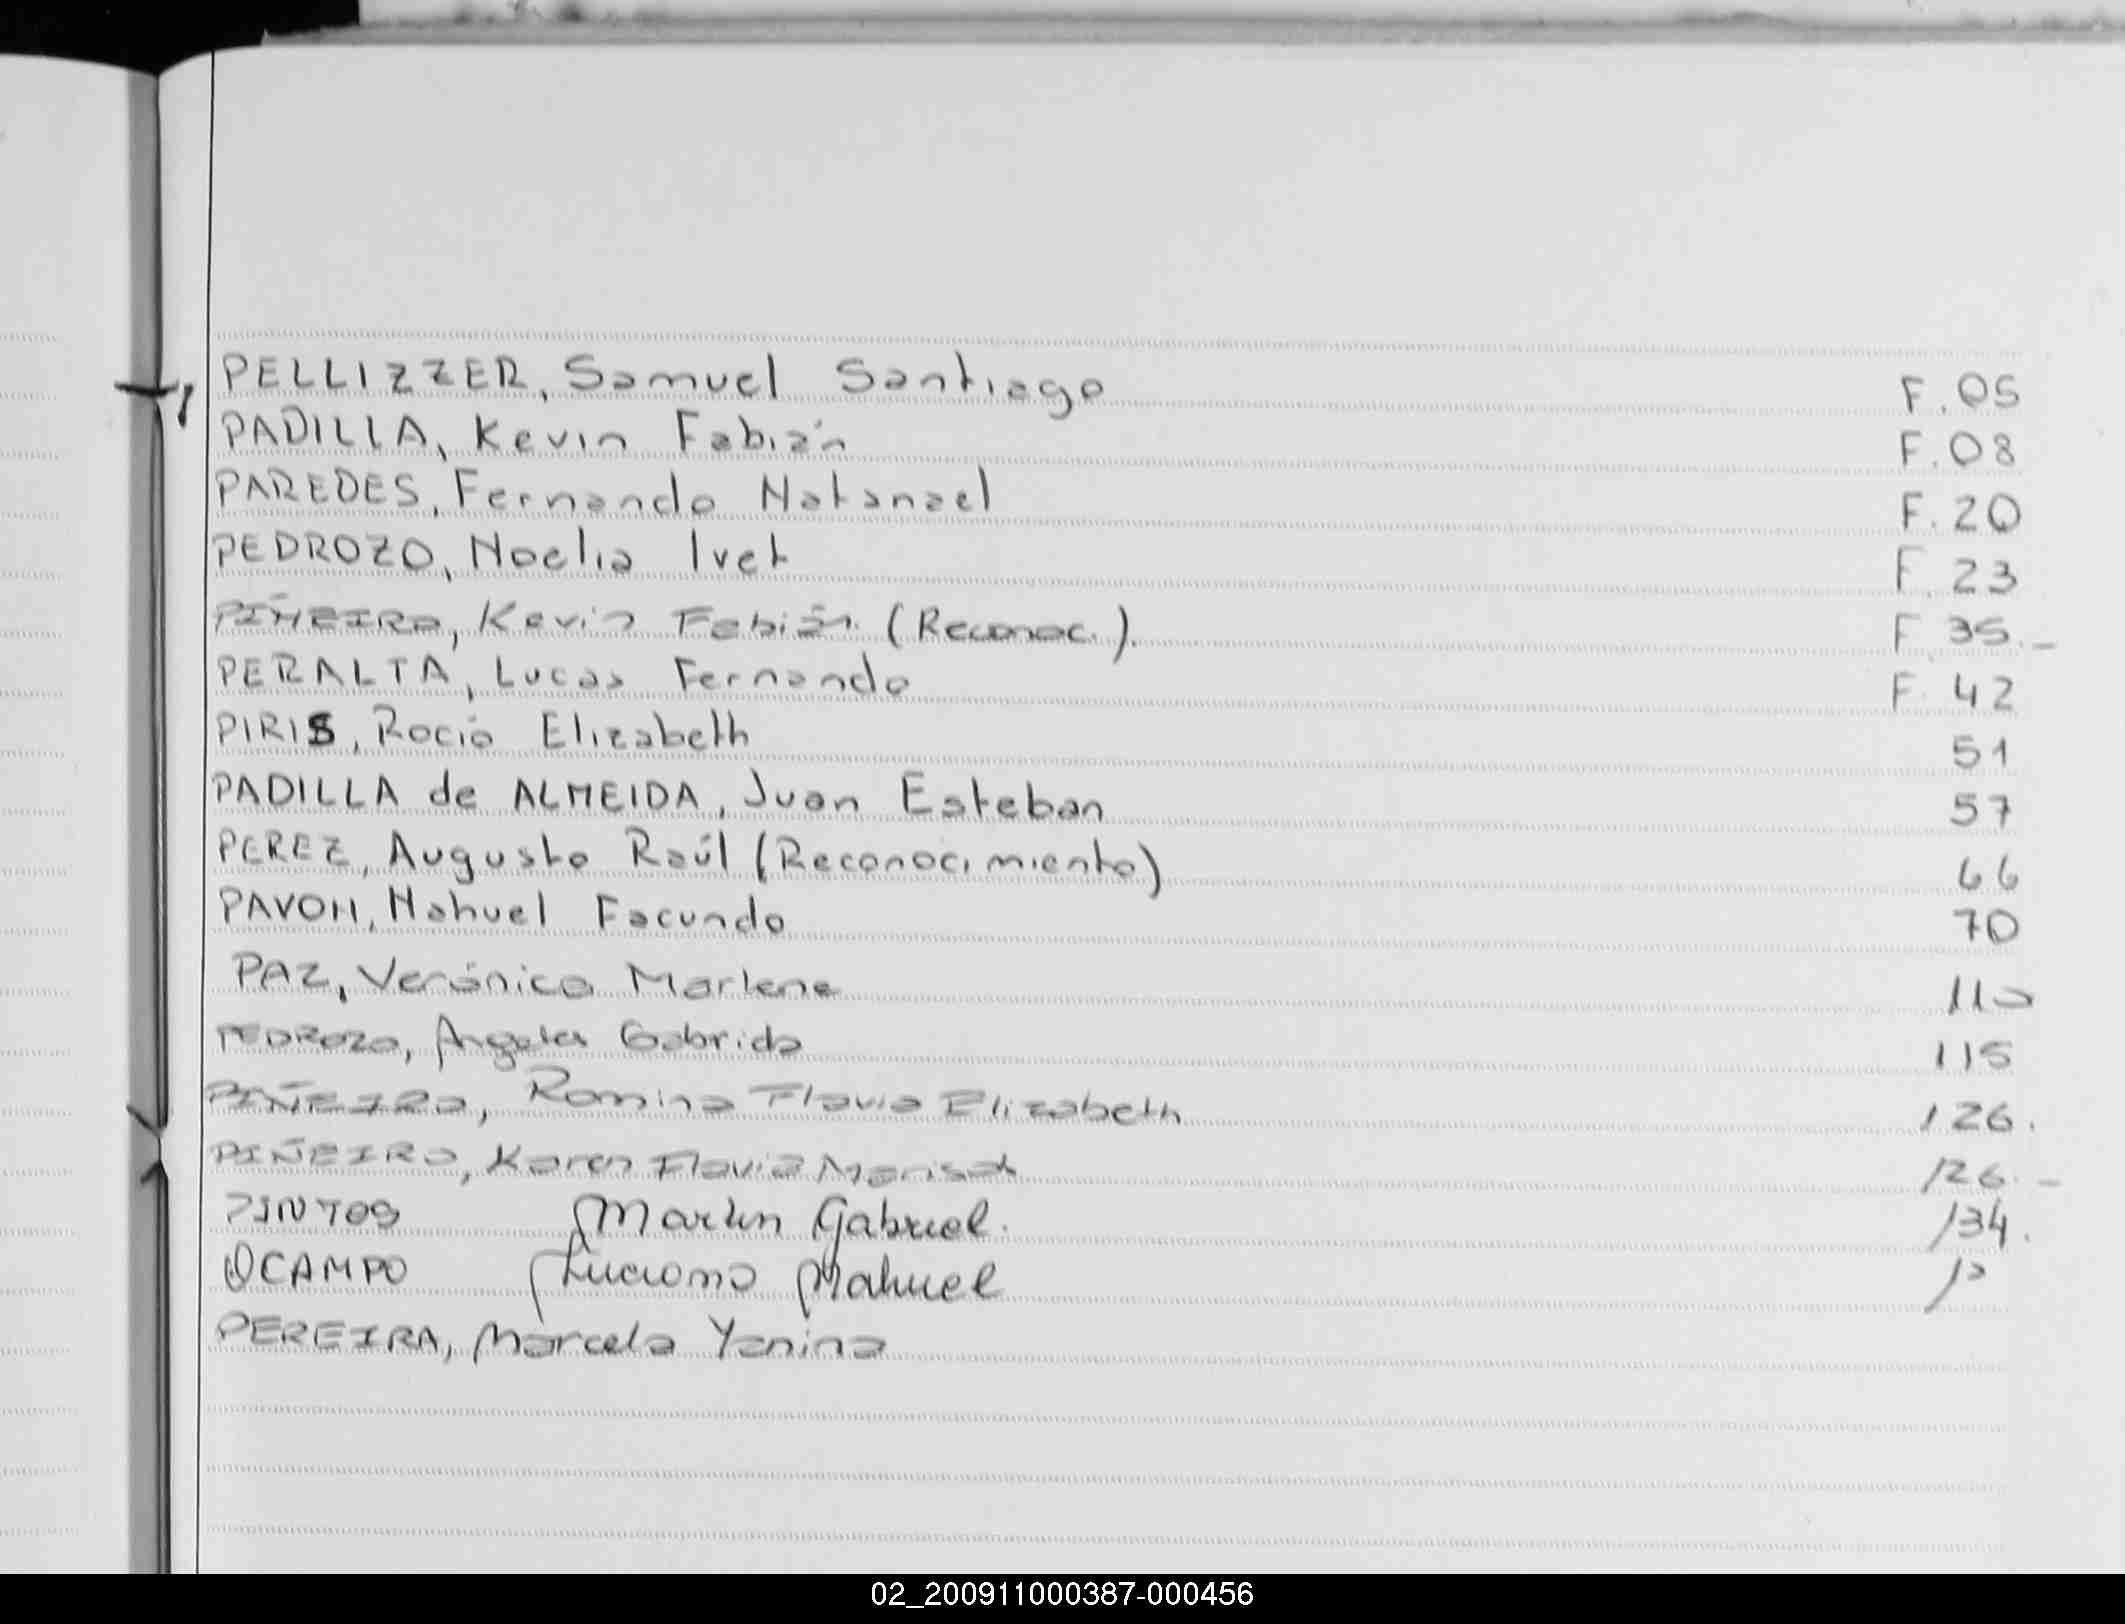 PELLIZZER, Samuel Santiago F. 05
PADILLA, Kevin Fabián F. 08
PAREDES, Fernando Natanael F. 20
PEDROZO, Noelia Ivet F 23
PIÑEIRO, Kevin Fabián (Reconoc.). F 35.-
PERALTA, Lucas Fernando F. 42
PIRIS, Rocio Elizabeth 51
PADILLA de ALMEIDA, Juan Esteban 57
PEREZ, Augusto Raúl (Reconocimiento) 66
PAVON, Nahuel Facundo 70
PAZ, Verónica Marlene
PEDROZO, Gabriela 115
PIÑEIRO, Romina Flavia Elizabeth 126.
PIÑEIRO, Karen Flavia Marisol 126.-
PINTOS Martin Gabriel. 134.
OCAMPO Luciano Nahuel
PEREIRA, Marcela Yanina
02_200911000387-000456